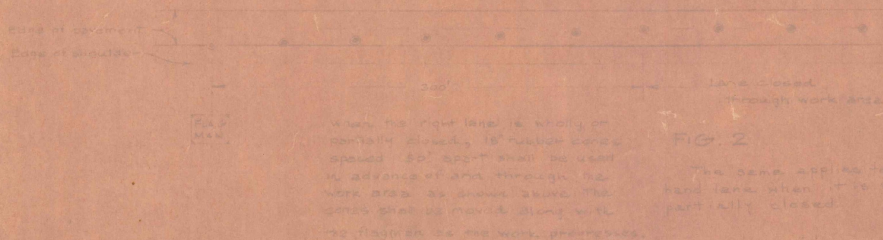 Edge of pavement
Edge of shoulder
200'
Lane closed
through work area
FLAG
MAN
When the right lane is wholly or
partially closed, 18" rubber cones
spaced 50' apart shall be used
in advance of and through the
work area as shown above. The
cones shall be moved along with
as the work progresses.
FIG. 2
The same applies to
hand lane when it is
partially closed.